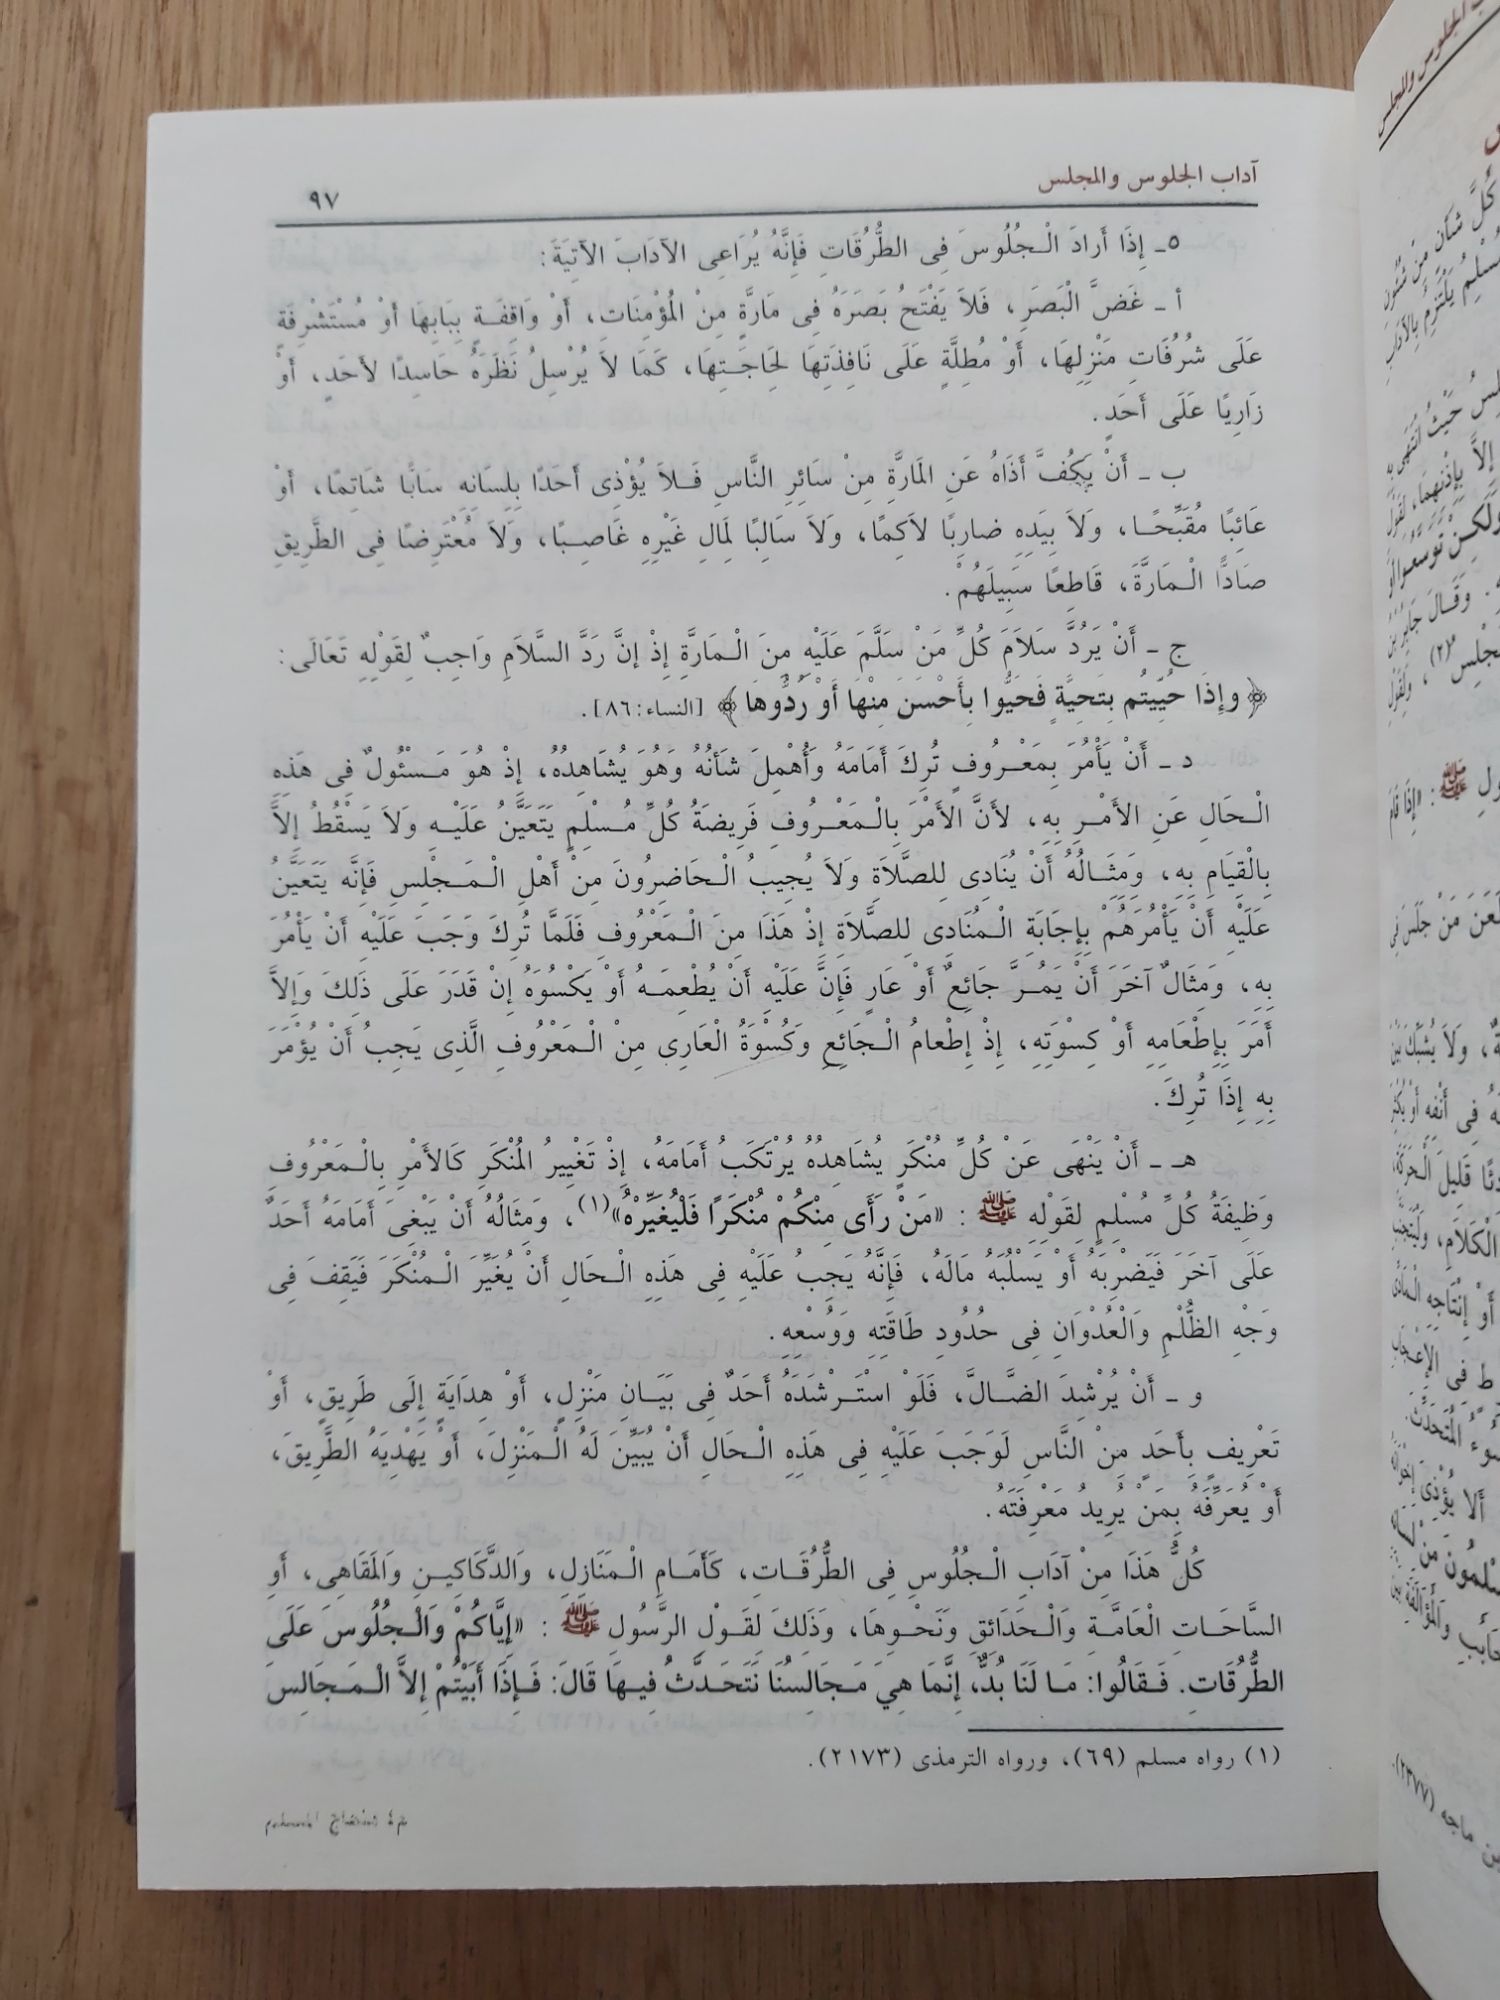 آداب الجلوس والمجلس
٩٧
٥ـ إِذَا أَرادَ الْـجُلُوسَ فِى الطُّرُقَاتِ فَإِنَّهُ يُرَاعِى الآدَابَ الآتِيَةَ:
أ ـ غَضَّ الْبَصَرِ، فَلاَ يَفْتَحُ بَصَرَهُ فِى مَارَّةٍ مِنَ الْمُؤْمِنَات، أَوْ وَاقِفَـةٍ بِبَابِهَا أوْ مُسْتَشْرِفَةٍ
عَلَى شُرُفَاتِ مَنْزِلِهَا، أَوْ مُطِلَّةٍ عَلَى نَافِذَتِهَا لِحَاجَـتِهَا، كَمَا لاَ يُرْسِلُ نَظَرَهُ حَاسِدًا لأَحَدٍ، أَوْ
زَارِيًا عَلَى أَحَدٍ.
ب ـ أَنْ يَكُفَّ أَذَاهُ عَنِ المَارَّةِ مِنْ سَائِرِ النَّاسِ فَـلاَ يُؤْذِى أَحَدًا بِلِسَانِهِ سَابًّا شَاتِمًا، أَوْ
عَائِبًا مُقَبِّحًـا، وَلاَ بِيَدِهِ ضارِبًا لاَكِمًا، وَلاَ سَالِبًا لِمَالِ غَيْرِهِ غَاصِـبًا، وَلاَ مُعْتَرِضًا فِى الطَّرِيقِ
صَادًّا الْـمَارَّةَ، قَاطِعًا سَبِيلَهُمْ.
ج ـ أَنْ يَرُدَّ سَلاَمَ كُلِّ مَنْ سَلَّمَ عَلَيْهِ مِنَ الْـمَارَّةِ إِذْ إِنَّ رَدَّ السَّلاَمِ وَاجِبٌ لِقَوْلِهِ تَعَالَى:
﴿ وإِذَا حُيِّيتُم بِتَحِيَّةٍ فَحَيُّوا بِأَحْسَنَ مِنْهَا أَوْ رُدُّوهَا ﴾ [النساء: ٨٦].
د ـ أَنْ يَأْمُرَ بِمَعْـرُوفٍ تُرِكَ أَمَامَهُ وَأُهْمِلَ شَأْنُهُ وَهُوَ يُشَاهِدُهُ، إِذْ هُوَ مَـسْئُولٌ فِى هَذِهِ
الْـحَالِ عَنِ الأَمْـرِ بِهِ، لأَنَّ الأَمْرَ بِالْـمَعْـرُوفِ فَرِيضَةُ كُلِّ مُـسْلِمٍ يَتَعَيَّنُ عَلَيْـهِ وَلاَ يَسْقُطُ إِلاَّ
بِالْقِيَامِ بِهِ، وَمِثَـالُهُ أَنْ يُنَادِى لِلصَّلاَةِ وَلاَ يُجِيبُ الْـحَاضِرُونَ مِنْ أَهْلِ الْـمَـجْلِسِ فَإِنَّه يَتَعَيَّنُ
عَلَيْهِ أَنْ يَأْمُرَهُمْ بِإِجَابَةِ الْـمُنَادِى لِلصَّلاَةِ إِذْ هَذَا مِنَ الْـمَعْرُوفِ فَلَمَّا تُرِكَ وَجَبَ عَلَيْهِ أَنْ يَأْمُرَ
بِهِ، وَمِثَالٌ آخَرَ أَنْ يَمُـرَّ جَائِعٌ أَوْ عَارٍ فَإِنَّ عَلَيْهِ أَنْ يُطْعِمَـهُ أَوْ يَكْسُوَهُ إِنْ قَدَرَ عَلَى ذَلِكَ وَإِلاَّ
أَمَرَ بِإِطْعَامِهِ أَوْ كِسْوَتِهِ، إِذْ إِطْعَامُ الْـجَائِعِ وَكُسْوَةُ الْعَارِى مِنْ الْـمَعْرُوفِ الَّذِى يَجِبُ أَنْ يُؤْمَرَ
بِهِ إِذَا تُرِكَ.
هـ ـ أَنْ يَنْهَى عَنْ كُلِّ مُنْكَرٍ يُشَاهِدُهُ يُرْتَكَبُ أَمَامَهُ، إِذْ تَغْيِيرُ المُنْكَرِ كَالأَمْرِ بِالْـمَعْرُوفِ
وَظِيفَةُ كُلِّ مُسْلِمٍ لِقَوْلِهِ ﷺ : «مَنْ رَأَى مِنْكُمْ مُنْكَرًا فَلْيُغَيِّرْهُ»(١)، وَمِثَالُهُ أَنْ يَبْغِىَ أَمَامَهُ أَحَدٌ
عَلَى آخَرَ فَيَضْرِبَهُ أَوْ يَسْلُبَهُ مَالَهُ، فَإِنَّهُ يَجِبُ عَلَيْهِ فِى هَذِهِ الْـحَالِ أَنْ يُغَيِّرَ الْـمُنْكَرَ فَيَقِفَ فِى
وَجْهِ الظُّلْمِ وَالْعُدْوَانِ فِى حُدُودِ طَاقَتِهِ وَوُسْعِهِ.
و ـ أَنْ يُرْشِدَ الضَّـالَّ، فَلَوْ اسْتَـرْشَدَهُ أَحَدٌ فِى بَيَـانِ مَنْزِلٍ، أَوْ هِدَايَةٍ إِلَى طَرِيقٍ، أَوْ
تَعْرِيفٍ بِأَحَدٍ مِنْ النَّاسِ لَوَجَبَ عَلَيْهِ فِى هَذِهِ الْـحَالِ أَنْ يُبَيِّنَ لَهُ الْـمَنْزِلَ، أَوْ يَهْدِيَهُ الطَّرِيقَ،
أَوْ يُعَرِّفَهُ بِمَنْ يُرِيدُ مَعْرِفَتَهُ.
كُلُّ هَذَا مِنْ آدَابِ الْـجُلُوسِ فِى الطُّرُقَـاتِ، كَأَمَـامِ الْـمَنَازِلِ، وَالدَّكَاكِيـنِ وَالمَقَاهِى، أَوِ
السَّاحَـاتِ الْعَامَّـةِ وَالْـحَدَائِقِ وَنَحْـوِهَا، وَذَلِكَ لِقَـوْلِ الرَّسُولِ ﷺ : «إِيَّاكُمْ وَالْـجُلُوسَ عَلَى
الطُّرُقَاتِ. فَـقَالُوا: مَـا لَنَا بُدٌّ، إِنَّمَا هِيَ مَـجَالِسُنَا نَتَحَـدَّثُ فِيـهَا قَالَ: فَـإِذَا أَبَيْتُمْ إِلاَّ الْـمَـجَالِسَ
(١) رواه مسلم (٦٩)، ورواه الترمذى (٢١٧٣).